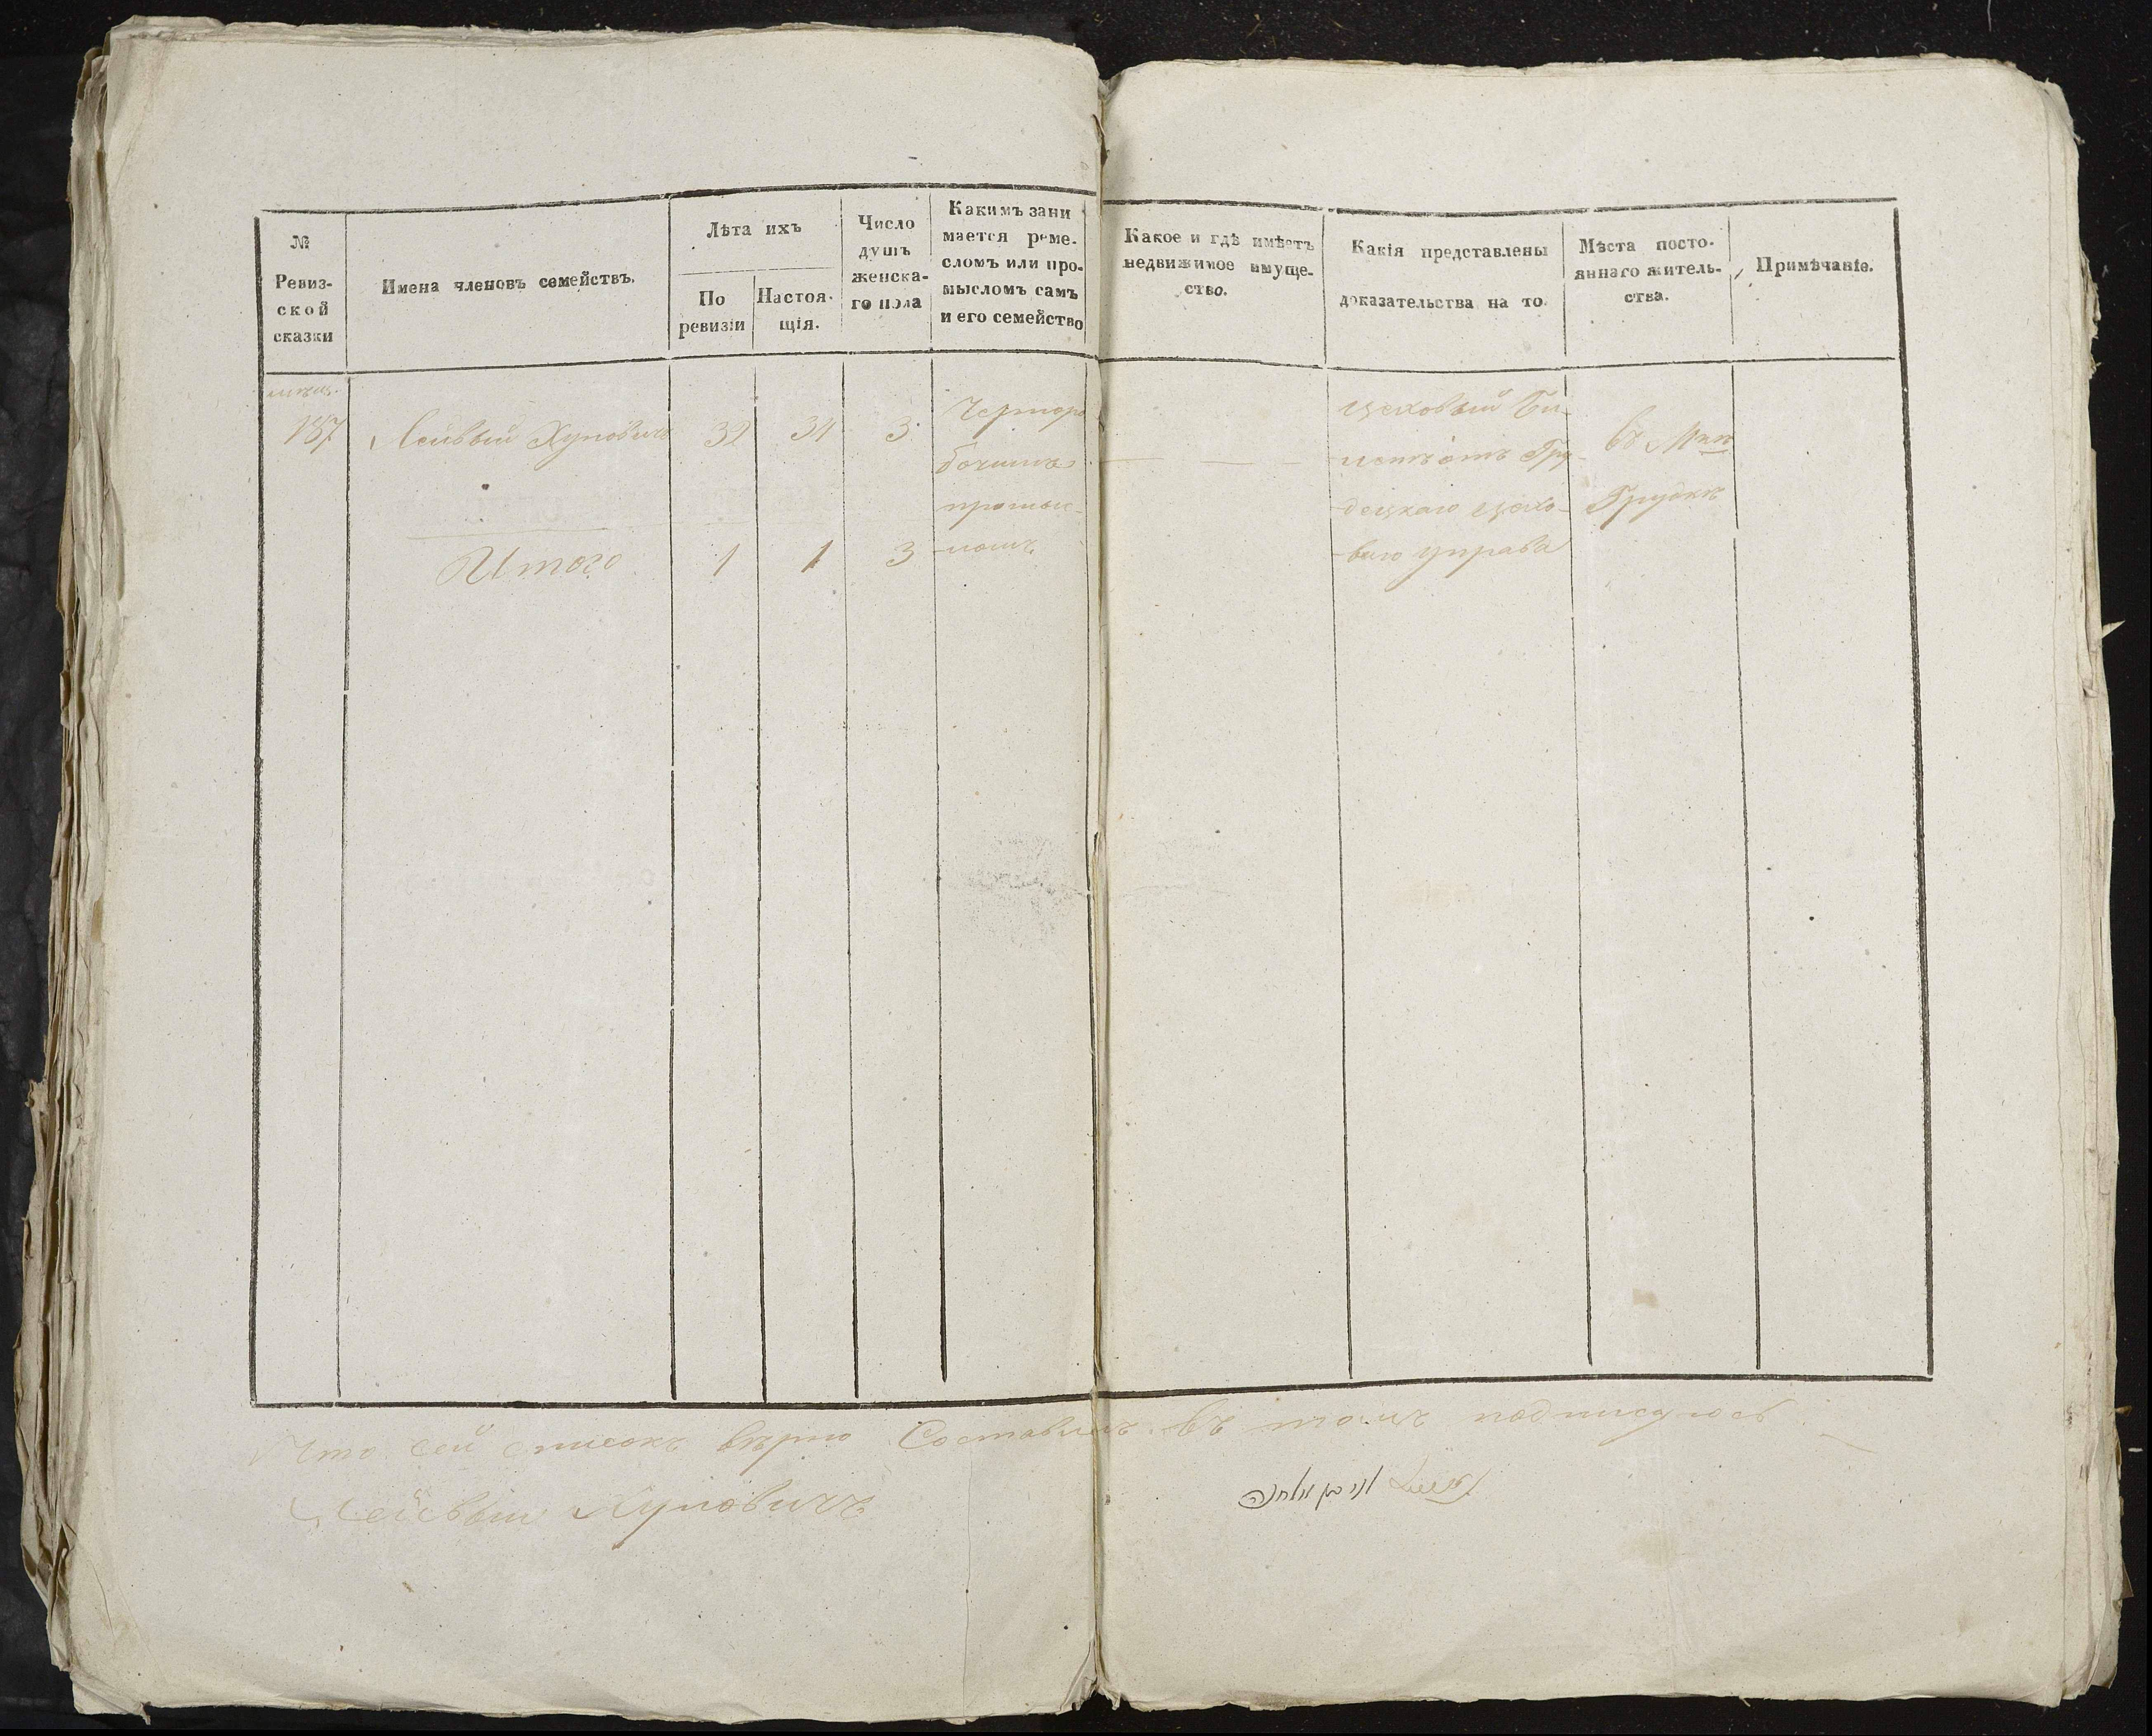 №
Ревиз-
ской
сказки
Имена членовъ семействъ.
Лѣта ихъ
По
ревизіи
Настоя-
щія.
Число
душъ
женска-
го пола
Какимъ зани
мается реме-
сломъ или про-
мысломъ самъ
и его семейство
Какое и гдѣ имѣетъ
недвижимое имуще-
ство.
Какія представлены
доказательства на то.
Мѣста посто-
яннаго житель-
ства.
Примѣчаніе.
137 Лейвый Хуновичъ 32 34 3 Черноро
бочимъ
промы-
сломъ
цеховый Би-
летъ отъ Гру-
децкаго цехо-
ваго управа
въ
Грудкѣ
Итого 1 1 3
Что сей списокъ вѣрно Составленъ въ томъ подписуюсь
Лейвый Хуновичъ